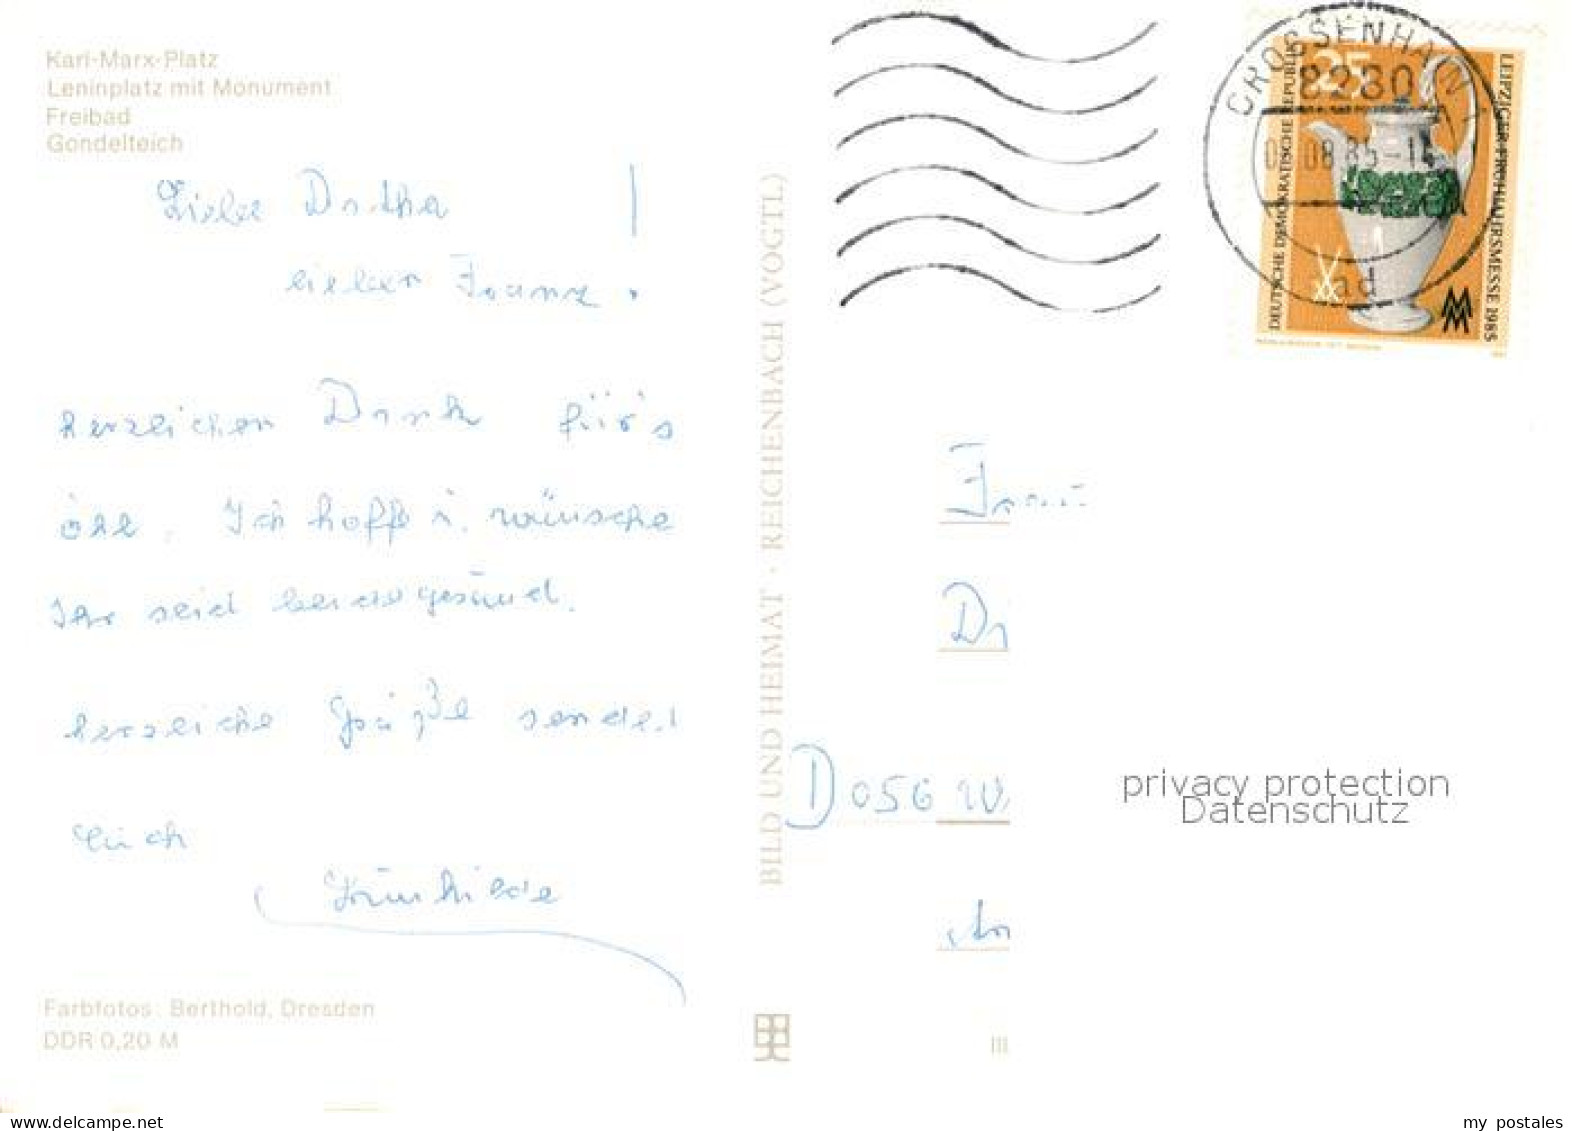 Karl-Marx-Platz
Leninplatz mit Monument
Freibad
Gondelteich
lieber Franz,
herzlichen Dank für's
Ich hoffe u. wünsche
Ihr seid beide gesund.
herzliche Grüße sendet
Euch
Farbfotos: Berthold, Dresden
DDR 0,20 M
BILD UND HEIMAT · REICHENBACH (VOGTL)
III
GROSSENHAIN 1
8280
ad
25
DEUTSCHE DEMOKRATISCHE REPUBLIK
LEIPZIGER FRÜHJAHRSMESSE 1985
MM
Di
D 056 W
privacy protection
Datenschutz
www.delcampe.net
my postales